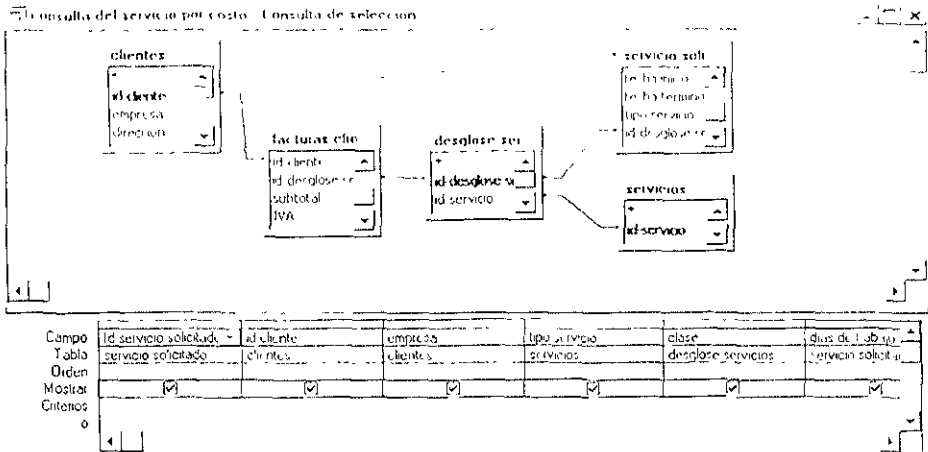 Consulta del servicio por costo Consulta de selección
clientes
*
id cliente
empresa
direccion
facturas clie
id cliente
id desglose se
subtotal
IVA
desglose ser
*
id desglose se
id servicio
servicio soli
fecha inicio
fecha termino
tipo servicio
id desglose se
servicios
*
id servicio
Campo Id servicio solicitado id cliente empresa tipo servicio clase dias de
Tabla servicio solicitado clientes clientes servicios desglose servicios servicio solicita
Orden
Mostrar
Criterios
o